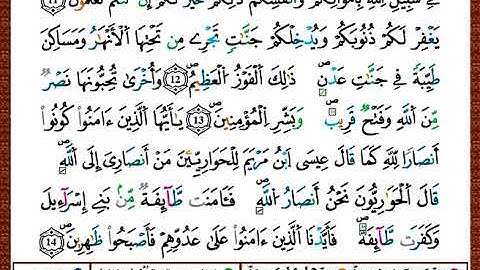 فِي سَبِيلِ اللَّهِ بِأَمْوَالِكُمْ وَأَنفُسِكُمْ ذَٰلِكُمْ خَيْرٌ لَّكُمْ إِن كُنتُمْ تَعْلَمُونَ 11
يَغْفِرْ لَكُمْ ذُنُوبَكُمْ وَيُدْخِلْكُمْ جَنَّاتٍ تَجْرِي مِن تَحْتِهَا الْأَنْهَارُ وَمَسَاكِنَ
طَيِّبَةً فِي جَنَّاتِ عَدْنٍ ذَٰلِكَ الْفَوْزُ الْعَظِيمُ 12 وَأُخْرَىٰ تُحِبُّونَهَا نَصْرٌ
مِّنَ اللَّهِ وَفَتْحٌ قَرِيبٌ وَبَشِّرِ الْمُؤْمِنِينَ 13 يَا أَيُّهَا الَّذِينَ ءَامَنُوا كُونُوا
أَنصَارًا لِلَّهِ كَمَا قَالَ عِيسَى ابْنُ مَرْيَمَ لِلْحَوَارِيِّينَ مَنْ أَنصَارِي إِلَى اللَّهِ
قَالَ الْحَوَارِيُّونَ نَحْنُ أَنصَارُ اللَّهِ فَـَٔامَنَت طَّآئِفَةٌ مِّن بَنِي إِسْرَآءِيلَ
وَكَفَرَت طَّآئِفَةٌ فَأَيَّدْنَا الَّذِينَ ءَامَنُوا عَلَىٰ عَدُوِّهِمْ فَأَصْبَحُوا ظَاهِرِينَ 14